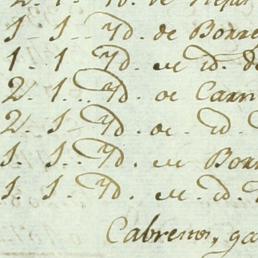 2. 1. Yd. de
1 1 Yd. de Borre
1 . 1 Yd. de id. de
2. 1. Yd. de Carn
2. 1. Yd. de id.
1. 1. Yd. de Born
1. 1. Yd. de id.
Cabreros,